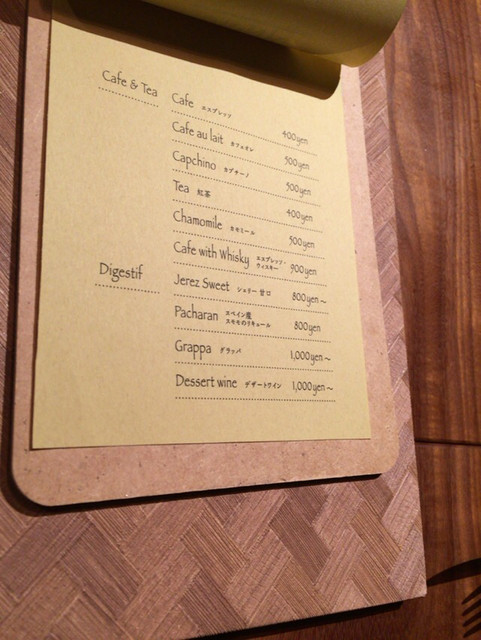 Cafe & Tea
Cafe エスプレッソ 400yen
Cafe au lait カフェオレ 500yen
Capchino カプチーノ 500yen
Tea 紅茶 400yen
Chamomile カモミール 500yen
Cafe with Whisky エスプレッソ・ウィスキー 900yen
Digestif
Jerez Sweet シェリー 甘口 800yen～
Pacharan スペイン産 スモモのリキュール 800yen
Grappa グラッパ 1,000yen～
Dessert wine デザートワイン 1,000yen～